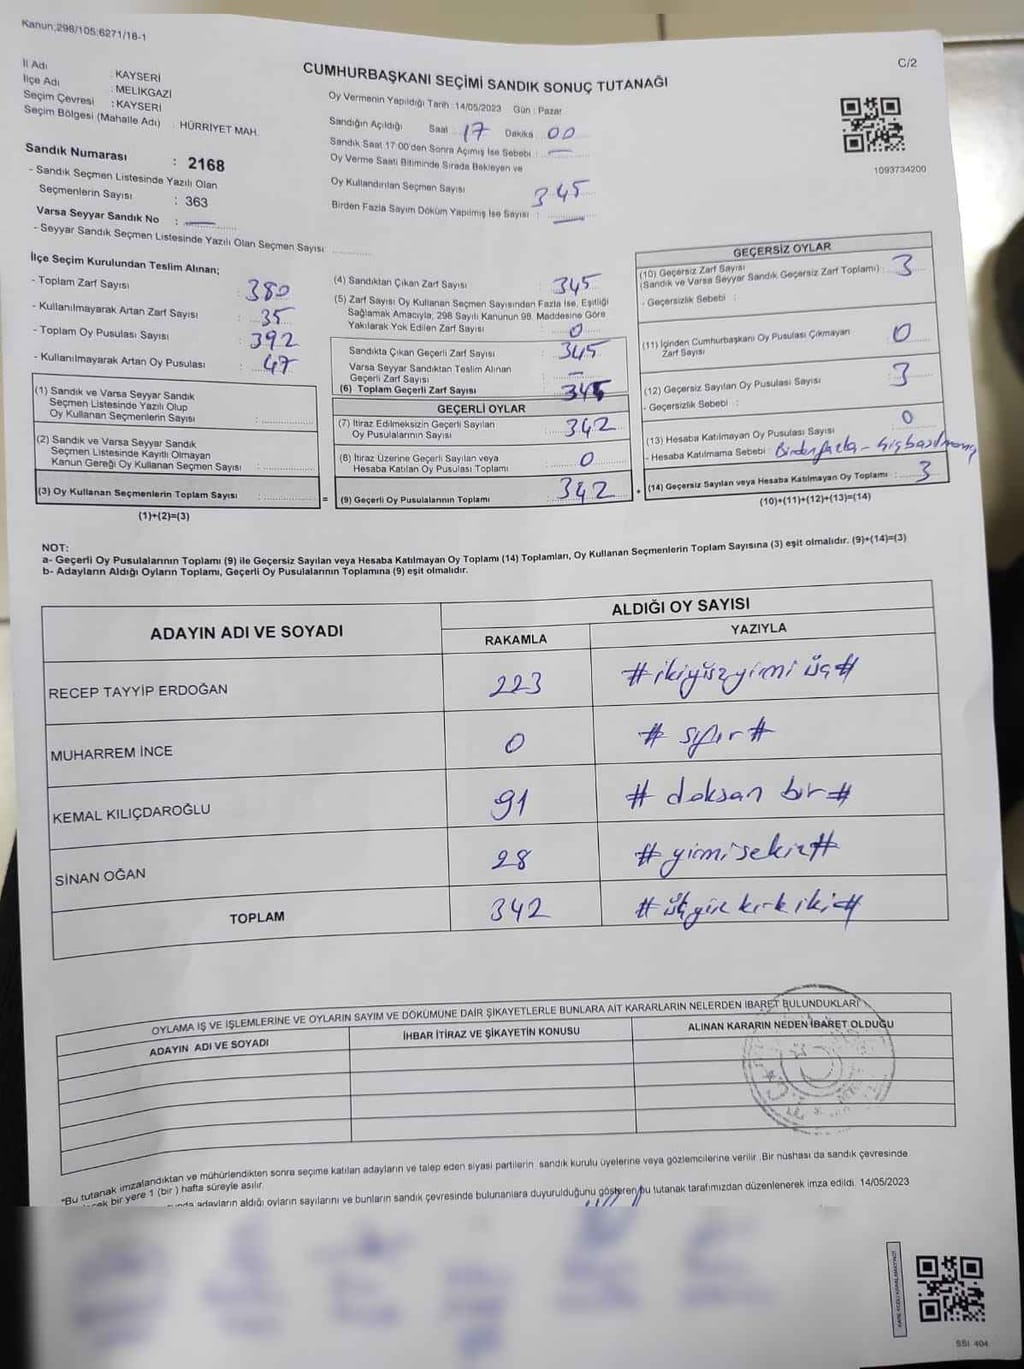 Kanun;298/105;6271/18-1
C/2
CUMHURBAŞKANI SEÇİMİ SANDIK SONUÇ TUTANAĞI
İl Adı : KAYSERİ
İlçe Adı : MELİKGAZİ
Seçim Çevresi : KAYSERİ
Seçim Bölgesi (Mahalle Adı) : HÜRRİYET MAH.
Sandık Numarası : 2168
- Sandık Seçmen Listesinde Yazılı Olan
Seçmenlerin Sayısı : 363
Varsa Seyyar Sandık No : —
- Seyyar Sandık Seçmen Listesinde Yazılı Olan Seçmen Sayısı
Oy Vermenin Yapıldığı Tarih :14/05/2023 Gün : Pazar
Sandığın Açıldığı Saat 17 Dakika 00
Sandık Saat 17:00'den Sonra Açımış İse Sebebi : —
Oy Verme Saati Bitiminde Sırada Bekleyen ve
Oy Kullandırılan Seçmen Sayısı 345
Birden Fazla Sayım Döküm Yapılmış İse Sayısı : —
1093734200
İlçe Seçim Kurulundan Teslim Alınan;
- Toplam Zarf Sayısı : 380
- Kullanılmayarak Artan Zarf Sayısı : 35
- Toplam Oy Pusulası Sayısı : 392
- Kullanılmayarak Artan Oy Pusulası : 47
(1) Sandık ve Varsa Seyyar Sandık
Seçmen Listesinde Yazılı Olup
Oy Kullanan Seçmenlerin Sayısı :
(2) Sandık ve Varsa Seyyar Sandık
Seçmen Listesinde Kayıtlı Olmayan
Kanun Gereği Oy Kullanan Seçmen Sayısı :
(3) Oy Kullanan Seçmenlerin Toplam Sayısı :
(1)+(2)=(3)
(4) Sandıktan Çıkan Zarf Sayısı : 345
(5) Zarf Sayısı Oy Kullanan Seçmen Sayısından Fazla İse, Eşitliği
Sağlamak Amacıyla, 298 Sayılı Kanunun 98. Maddesine Göre
Yakılarak Yok Edilen Zarf Sayısı : 0
Sandıkta Çıkan Geçerli Zarf Sayısı : 345
Varsa Seyyar Sandıktan Teslim Alınan
Geçerli Zarf Sayısı : —
(6) Toplam Geçerli Zarf Sayısı : 345
GEÇERLİ OYLAR
(7) İtiraz Edilmeksizin Geçerli Sayılan
Oy Pusulalarının Sayısı : 342
(8) İtiraz Üzerine Geçerli Sayılan veya
Hesaba Katılan Oy Pusulası Toplamı : 0
= (9) Geçerli Oy Pusulalarının Toplamı : 342 +
GEÇERSİZ OYLAR
(10) Geçersiz Zarf Sayısı
(Sandık ve Varsa Seyyar Sandık Geçersiz Zarf Toplamı) : 3
- Geçersizlik Sebebi :
(11) İçinden Cumhurbaşkanı Oy Pusulası Çıkmayan
Zarf Sayısı 0
(12) Geçersiz Sayılan Oy Pusulası Sayısı : 3
- Geçersizlik Sebebi :
(13) Hesaba Katılmayan Oy Pusulası Sayısı : 0
- Hesaba Katılmama Sebebi : Birden fazla - hiç basılmamış
(14) Geçersiz Sayılan veya Hesaba Katılmayan Oy Toplamı : 3
(10)+(11)+(12)+(13)=(14)
NOT:
a- Geçerli Oy Pusulalarının Toplamı (9) ile Geçersiz Sayılan veya Hesaba Katılmayan Oy Toplamı (14) Toplamları, Oy Kullanan Seçmenlerin Toplam Sayısına (3) eşit olmalıdır. (9)+(14)=(3)
b- Adayların Aldığı Oyların Toplamı, Geçerli Oy Pusulalarının Toplamına (9) eşit olmalıdır.
ADAYIN ADI VE SOYADI
ALDIĞI OY SAYISI
RAKAMLA YAZIYLA
RECEP TAYYİP ERDOĞAN 223 #ikiyüzyirmi üç#
MUHARREM İNCE 0 # sıfır #
KEMAL KILIÇDAROĞLU 91 # doksan bir #
SİNAN OĞAN 28 #yirmisekiz#
TOPLAM 342 #üçyüz kırk iki#
OYLAMA İŞ VE İŞLEMLERİNE VE OYLARIN SAYIM VE DÖKÜMÜNE DAİR ŞİKAYETLERLE BUNLARA AİT KARARLARIN NELERDEN İBARET BULUNDUKLARI
ADAYIN ADI VE SOYADI İHBAR İTİRAZ VE ŞİKAYETİN KONUSU ALINAN KARARIN NEDEN İBARET OLDUĞU
*Bu tutanak imzalandıktan ve mühürlendikten sonra seçime katılan adayların ve talep eden siyasi partilerin sandık kurulu üyelerine veya gözlemcilerine verilir .Bir nüshası da sandık çevresinde
bir yere 1 (bir ) hafta süreyle asılır.
adayların aldığı oyların sayılarını ve bunların sandık çevresinde bulunanlara duyurulduğunu gösteren bu tutanak tarafımızdan düzenlenerek imza edildi. 14/05/2023
SSİ 404